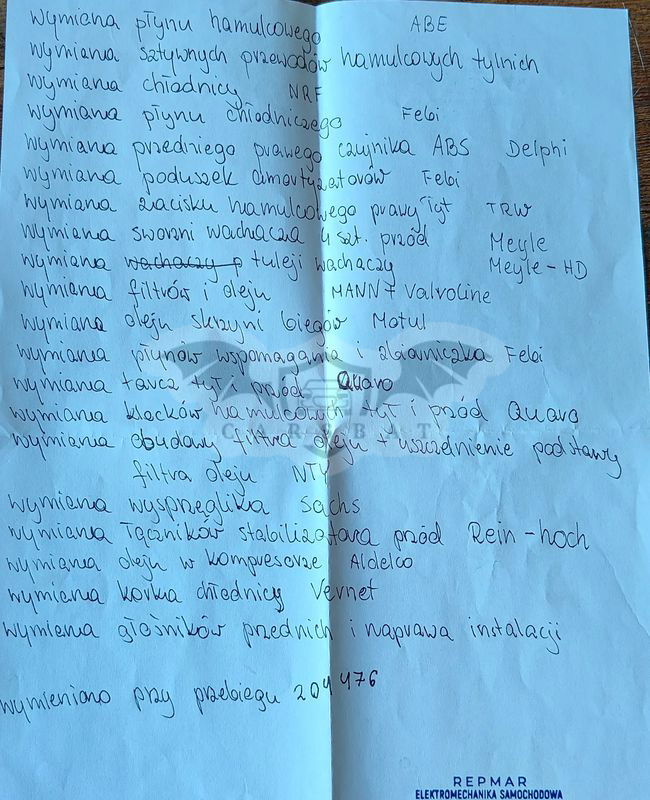 wymiana płynu hamulcowego ABE
wymiana sztywnych przewodów hamulcowych tylnich
wymiana chłodnicy NRF
wymiana płynu chłodniczego Febi
wymiana przedniego prawego czujnika ABS Delphi
wymiana poduszek amortyzatorów Febi
wymiana zacisku hamulcowego prawy tył TRW
wymiana sworzni wachacza 4 szt. przód Meyle
wymiana wachaczy p tuleji wachaczy Meyle-HD
wymiana filtrów i oleju MANN + Valvoline
wymiana oleju skrzyni biegów Motul
wymiana płynów wspomagania i zbiorniczka Febi
wymiana tarcz tył i przód Quaro
wymiana klocków hamulcowch tył i przód Quaro
CARSBAT
wymiana obudowy filtra oleju + uszczelnienie podstawy
filtra oleju NTY
wymiana wysprzęglika Sachs
wymiana łączników stabilizatora przód Rein-hoch
wymiana oleju w kompresorze Aldelco
wymiana korka chłodnicy Vernet
wymiana głośników przednich i naprawa instalacji
wymieniano przy przebiegu 204 476
REPMAR
ELEKTROMECHANIKA SAMOCHODOWA